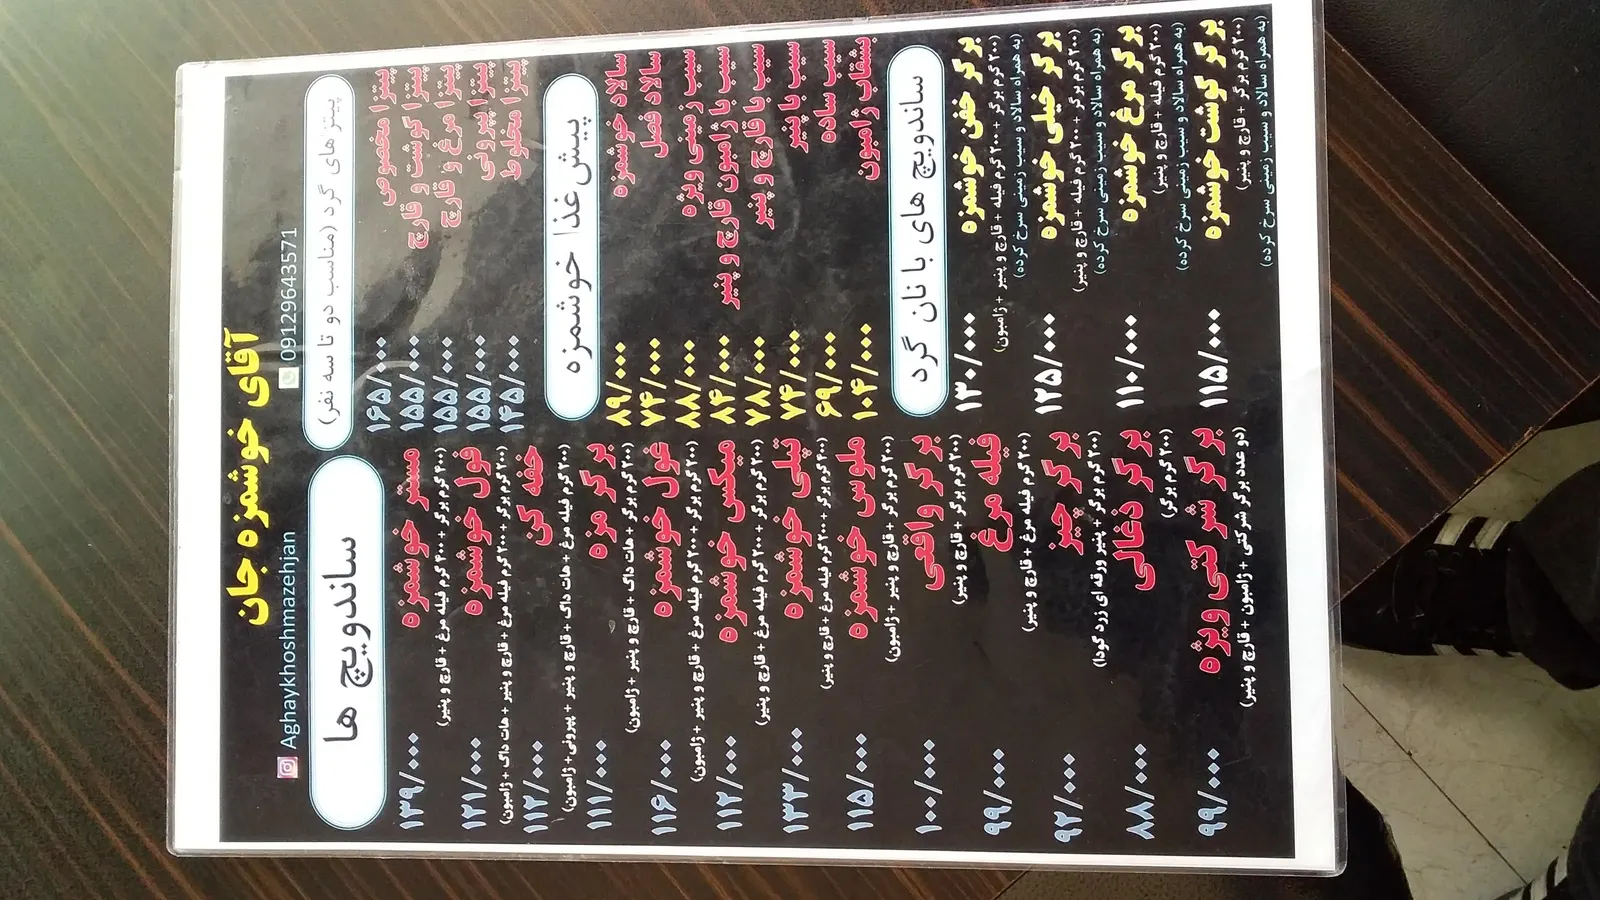 آقای خوشمزه جان
Aghaykhoshmazehjan
09129643571
پیتزا های گرد (مناسب دو تا سه نفر)
پیتزا مخصوص ۱۶۵/۰۰۰
پیتزا گوشت و قارچ ۱۵۵/۰۰۰
پیتزا مرغ و قارچ ۱۵۵/۰۰۰
پیتزا پپرونی ۱۵۵/۰۰۰
پیتزا مخلوط ۱۴۵/۰۰۰
پیش غذا خوشمزه
سالاد خوشمزه ۸۹/۰۰۰
سالاد فصل ۷۴/۰۰۰
سیب زمینی ویژه ۸۸/۰۰۰
سیب با ژامبون قارچ و پنیر ۸۴/۰۰۰
سیب با قارچ و پنیر ۷۸/۰۰۰
سیب با پنیر ۷۴/۰۰۰
سیب ساده ۶۹/۰۰۰
بشقاب ژامبون ۱۰۴/۰۰۰
ساندویچ های با نان گرد
برگر خفن خوشمزه ۱۳۰/۰۰۰
(۲۰۰ گرم برگر + ۲۰۰ گرم فیله + قارچ و پنیر + ژامبون)
(به همراه سالاد و سیب زمینی سرخ کرده)
برگر خیلی خوشمزه ۱۲۵/۰۰۰
(۲۰۰ گرم برگر + ۲۰۰ گرم فیله + قارچ و پنیر)
(به همراه سالاد و سیب زمینی سرخ کرده)
برگر مرغ خوشمزه ۱۱۰/۰۰۰
(۲۰۰ گرم فیله + قارچ و پنیر)
(به همراه سالاد و سیب زمینی سرخ کرده)
برگر گوشت خوشمزه ۱۱۵/۰۰۰
(۲۰۰ گرم برگر + قارچ و پنیر)
(به همراه سالاد و سیب زمینی سرخ کرده)
ساندویچ ها
مستر خوشمزه ۱۳۹/۰۰۰
(۴۰۰ گرم برگر + ۴۰۰ گرم فیله مرغ + قارچ و پنیر)
فول خوشمزه ۱۲۱/۰۰۰
(۲۰۰ گرم برگر + ۲۰۰ گرم فیله مرغ + قارچ و پنیر + هات داگ + ژامبون)
خفه کن ۱۱۲/۰۰۰
(۲۰۰ گرم فیله مرغ + هات داگ + قارچ و پنیر + پپرونی + ژامبون)
برگر مزه ۱۱۱/۰۰۰
(۲۰۰ گرم برگر + هات داگ + قارچ و پنیر + ژامبون)
غول خوشمزه ۱۱۶/۰۰۰
(۲۰۰ گرم برگر + ۲۰۰ گرم فیله مرغ + قارچ و پنیر + ژامبون)
میکس خوشمزه ۱۱۲/۰۰۰
(۲۰۰ گرم برگر + ۲۰۰ گرم فیله مرغ + قارچ و پنیر)
تپلی خوشمزه ۱۳۳/۰۰۰
(۴۰۰ گرم برگر + ۲۰۰ گرم فیله مرغ + قارچ و پنیر)
ملوس خوشمزه ۱۱۵/۰۰۰
(۲۰۰ گرم برگر + قارچ و پنیر + ژامبون)
برگر واقعی ۱۰۰/۰۰۰
(۲۰۰ گرم برگر + قارچ و پنیر)
فیله مرغ ۹۹/۰۰۰
(۲۰۰ گرم فیله مرغ + قارچ و پنیر)
برگر چیز ۹۲/۰۰۰
(۲۰۰ گرم برگر + پنیر ورقه ای زرد گودا)
برگر ذغالی ۸۸/۰۰۰
(۲۰۰ گرم برگر)
برگر شرکتی ویژه ۹۹/۰۰۰
(دو عدد برگر شرکتی + ژامبون + قارچ و پنیر)